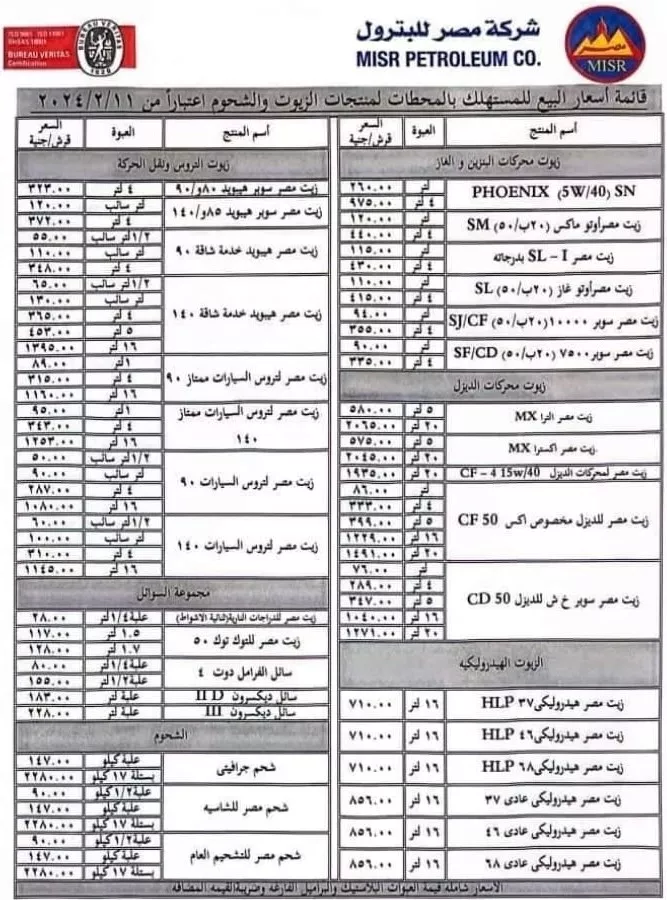 ISO 9001 ISO 14001
BUREAU VERITAS
Certification
BUREAU VERITAS
1828
شركة مصر للبترول
MISR PETROLEUM CO.
مصر
MISR
قائمة أسعار البيع للمستهلك بالمحطات لمنتجات الزيوت والشحوم اعتباراً من ٢٠٢٤/٢/١١
أسم المنتج العبوة السعر قرش/جنية
زيوت محركات البنزين و الغاز
PHOENIX (5W/40) SN لتر ٢٦٠.٠٠
٤ لتر ٩٧٥.٠٠
زيت مصراوتو ماكس (٢٠ب/٥٠) SM لتر ١٢٠.٠٠
٤ لتر ٤٤٠.٠٠
زيت مصر SL - I بدرجاته لتر ١١٥.٠٠
٤ لتر ٤٣٠.٠٠
زيت مصرأوتو غاز (٢٠ب/٥٠) SL لتر ١١٠.٠٠
٤ لتر ٤١٥.٠٠
زيت مصر سوبر ١٠٠٠٠(٢٠ب/٥٠) SJ/CF لتر ٩٤.٠٠
٤ لتر ٣٥٥.٠٠
زيت مصر سوبر٧٥٠٠ (٢٠ب/٥٠) SF/CD لتر ٩٠.٠٠
٤ لتر ٣٣٥.٠٠
زيوت محركات الديزل
زيت مصر الترا MX ٥ لتر ٥٨٠.٠٠
٢٠ لتر ٢٠٦٥.٠٠
زيت مصر اكسترا MX ٥ لتر ٥٧٥.٠٠
٢٠ لتر ٢٠٤٥.٠٠
زيت مصر لمحركات الديزل CF - 4 15w/40 ٢٠ لتر ١٩٣٥.٠٠
زيت مصر للديزل مخصوص اكس CF 50 لتر ٨٦.٠٠
٤ لتر ٣٣٣.٠٠
٥ لتر ٣٩٩.٠٠
١٦ لتر ١٢٢٩.٠٠
٢٠ لتر ١٤٩١.٠٠
زيت مصر سوبر خ ش للديزل CD 50 لتر ٧٦.٠٠
٤ لتر ٢٨٩.٠٠
٥ لتر ٣٤٧.٠٠
١٦ لتر ١٠٤٠.٠٠
٢٠ لتر ١٢٧١.٠٠
الزيوت الهيدروليكيه
زيت مصر هيدروليكى٣٧ HLP ١٦ لتر ٧١٠.٠٠
زيت مصر هيدروليكى٤٦ HLP ١٦ لتر ٧١٠.٠٠
زيت مصر هيدروليكى٦٨ HLP ١٦ لتر ٧١٠.٠٠
زيت مصر هيدروليكى عادى ٣٧ ١٦ لتر ٨٥٦.٠٠
زيت مصر هيدروليكى عادى ٤٦ ١٦ لتر ٨٥٦.٠٠
زيت مصر هيدروليكى عادى ٦٨ ١٦ لتر ٨٥٦.٠٠
أسم المنتج العبوة السعر قرش/جنية
زيوت التروس ونقل الحركة
زيت مصر سوبر هيبويد ٨٠و/٩٠ ٤ لتر ٣٢٣.٠٠
زيت مصر سوبر هيبويد ٨٥و/١٤٠ لتر سائب ١٢٠.٠٠
٤ لتر ٣٧٢.٠٠
زيت مصر هيبويد خدمة شاقة ٩٠ ١/٢لتر سائب ٥٥.٠٠
لتر سائب ١١٠.٠٠
٤ لتر ٣٤٨.٠٠
زيت مصر هيبويد خدمة شاقة ١٤٠ ١/٢لتر سائب ٦٥.٠٠
لتر سائب ١٣٠.٠٠
٤ لتر ٣٦٥.٠٠
٥ لتر ٤٥٣.٠٠
١٦ لتر ١٣٩٥.٠٠
زيت مصر لتروس السيارات ممتاز ٩٠ ١لتر ٨٩.٠٠
٤ لتر ٣١٥.٠٠
١٦ لتر ١١٦٠.٠٠
زيت مصر لتروس السيارات ممتاز ١٤٠ ١لتر ٩٥.٠٠
٤ لتر ٣٤٣.٠٠
١٦ لتر ١٢٥٣.٠٠
زيت مصر لتروس السيارات ٩٠ ١/٢لتر سائب ٥٠.٠٠
لتر سائب ٩٠.٠٠
٤ لتر ٢٨٧.٠٠
١٦ لتر ١٠٨٠.٠٠
زيت مصر لتروس السيارات ١٤٠ ١/٢لتر سائب ٦٠.٠٠
لتر سائب ١٠٠.٠٠
٤ لتر ٣١٠.٠٠
١٦ لتر ١١٤٥.٠٠
مجموعة السوائل
زيت مصر للدراجات النارية(ثنائية الاشواط) علبة١/٤لتر ٢٨.٠٠
زيت مصر للتوك توك ٥٠ ١.٥ لتر ١١٧.٠٠
١.٧ لتر ١٢٨.٠٠
سائل الفرامل دوت ٤ علبة١/٤ لتر ٨٠.٠٠
علبة١/٢ لتر ١٥٥.٠٠
سائل ديكسرون II D علبة لتر ١٨٣.٠٠
سائل ديكسرون III علبة لتر ٢٢٨.٠٠
الشحوم
شحم جرافيتى علبة كيلو ١٤٧.٠٠
بستلة ١٧ كيلو ٢٢٨٠.٠٠
شحم مصر للشاسيه علبة١/٢ كيلو ٩٠.٠٠
علبة كيلو ١٤٧.٠٠
بستلة ١٧ كيلو ٢٢٨٠.٠٠
شحم مصر للتشحيم العام علبة١/٢ كيلو ٩٠.٠٠
علبة كيلو ١٤٧.٠٠
بستلة ١٧ كيلو ٢٢٨٠.٠٠
الاسعار شامله قيمة العبوات البلاستيك والبراميل الفارغه وضريبةالقيمه المضافه